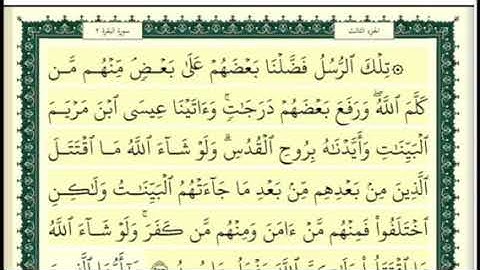 الجزء الثالث
سورة البقرة ٢
۞ تِلْكَ ٱلرُّسُلُ فَضَّلْنَا بَعْضَهُمْ عَلَىٰ بَعْضٍ مِّنْهُم مَّن
كَلَّمَ ٱللَّهُ وَرَفَعَ بَعْضَهُمْ دَرَجَٰتٍ وَءَاتَيْنَا عِيسَى ٱبْنَ مَرْيَمَ
ٱلْبَيِّنَٰتِ وَأَيَّدْنَٰهُ بِرُوحِ ٱلْقُدُسِ وَلَوْ شَآءَ ٱللَّهُ مَا ٱقْتَتَلَ
ٱلَّذِينَ مِنۢ بَعْدِهِم مِّنۢ بَعْدِ مَا جَآءَتْهُمُ ٱلْبَيِّنَٰتُ وَلَٰكِنِ
ٱخْتَلَفُوا۟ فَمِنْهُم مَّنْ ءَامَنَ وَمِنْهُم مَّن كَفَرَ وَلَوْ شَآءَ ٱللَّهُ